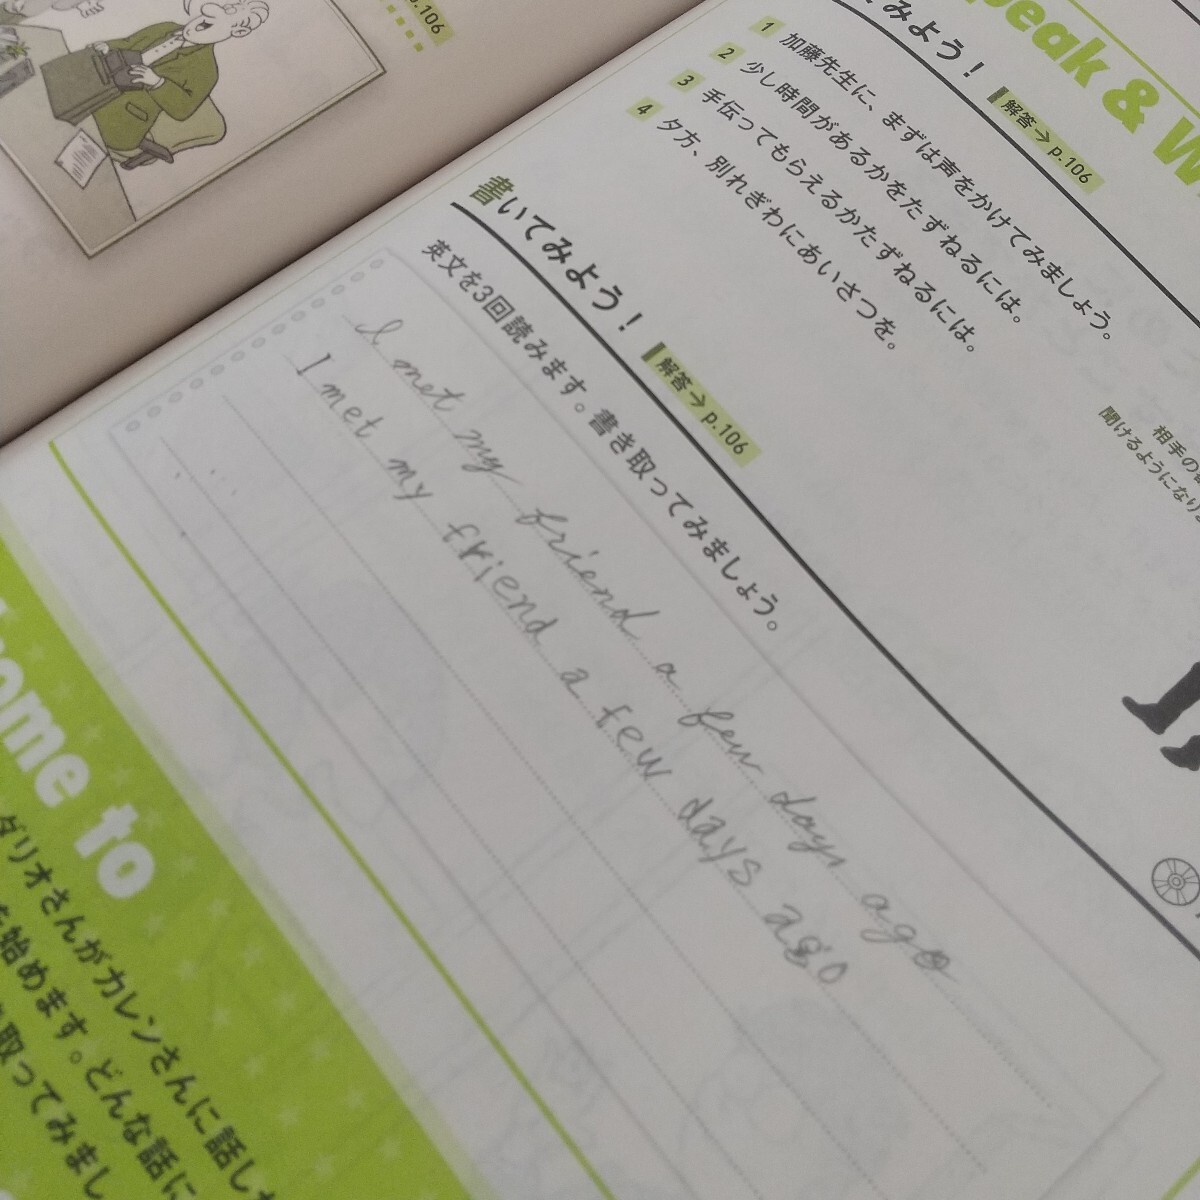 p.106
Speak & W
てみよう! 解答→p.106
1 加藤先生に、まずは声をかけてみましょう。
2 少し時間があるかをたずねるには。
3 手伝ってもらえるかたずねるには。
4 夕方、別れぎわにあいさつを。
相手の
聞けるようになりま
書いてみよう! 解答→p.106
英文を3回読みます。書き取ってみましょう。
I met my friend a few days ago
I met my friend a few days ago
ome to
ダリオさんがカレンさんに話した
を始めます。どんな話に
取ってみまし